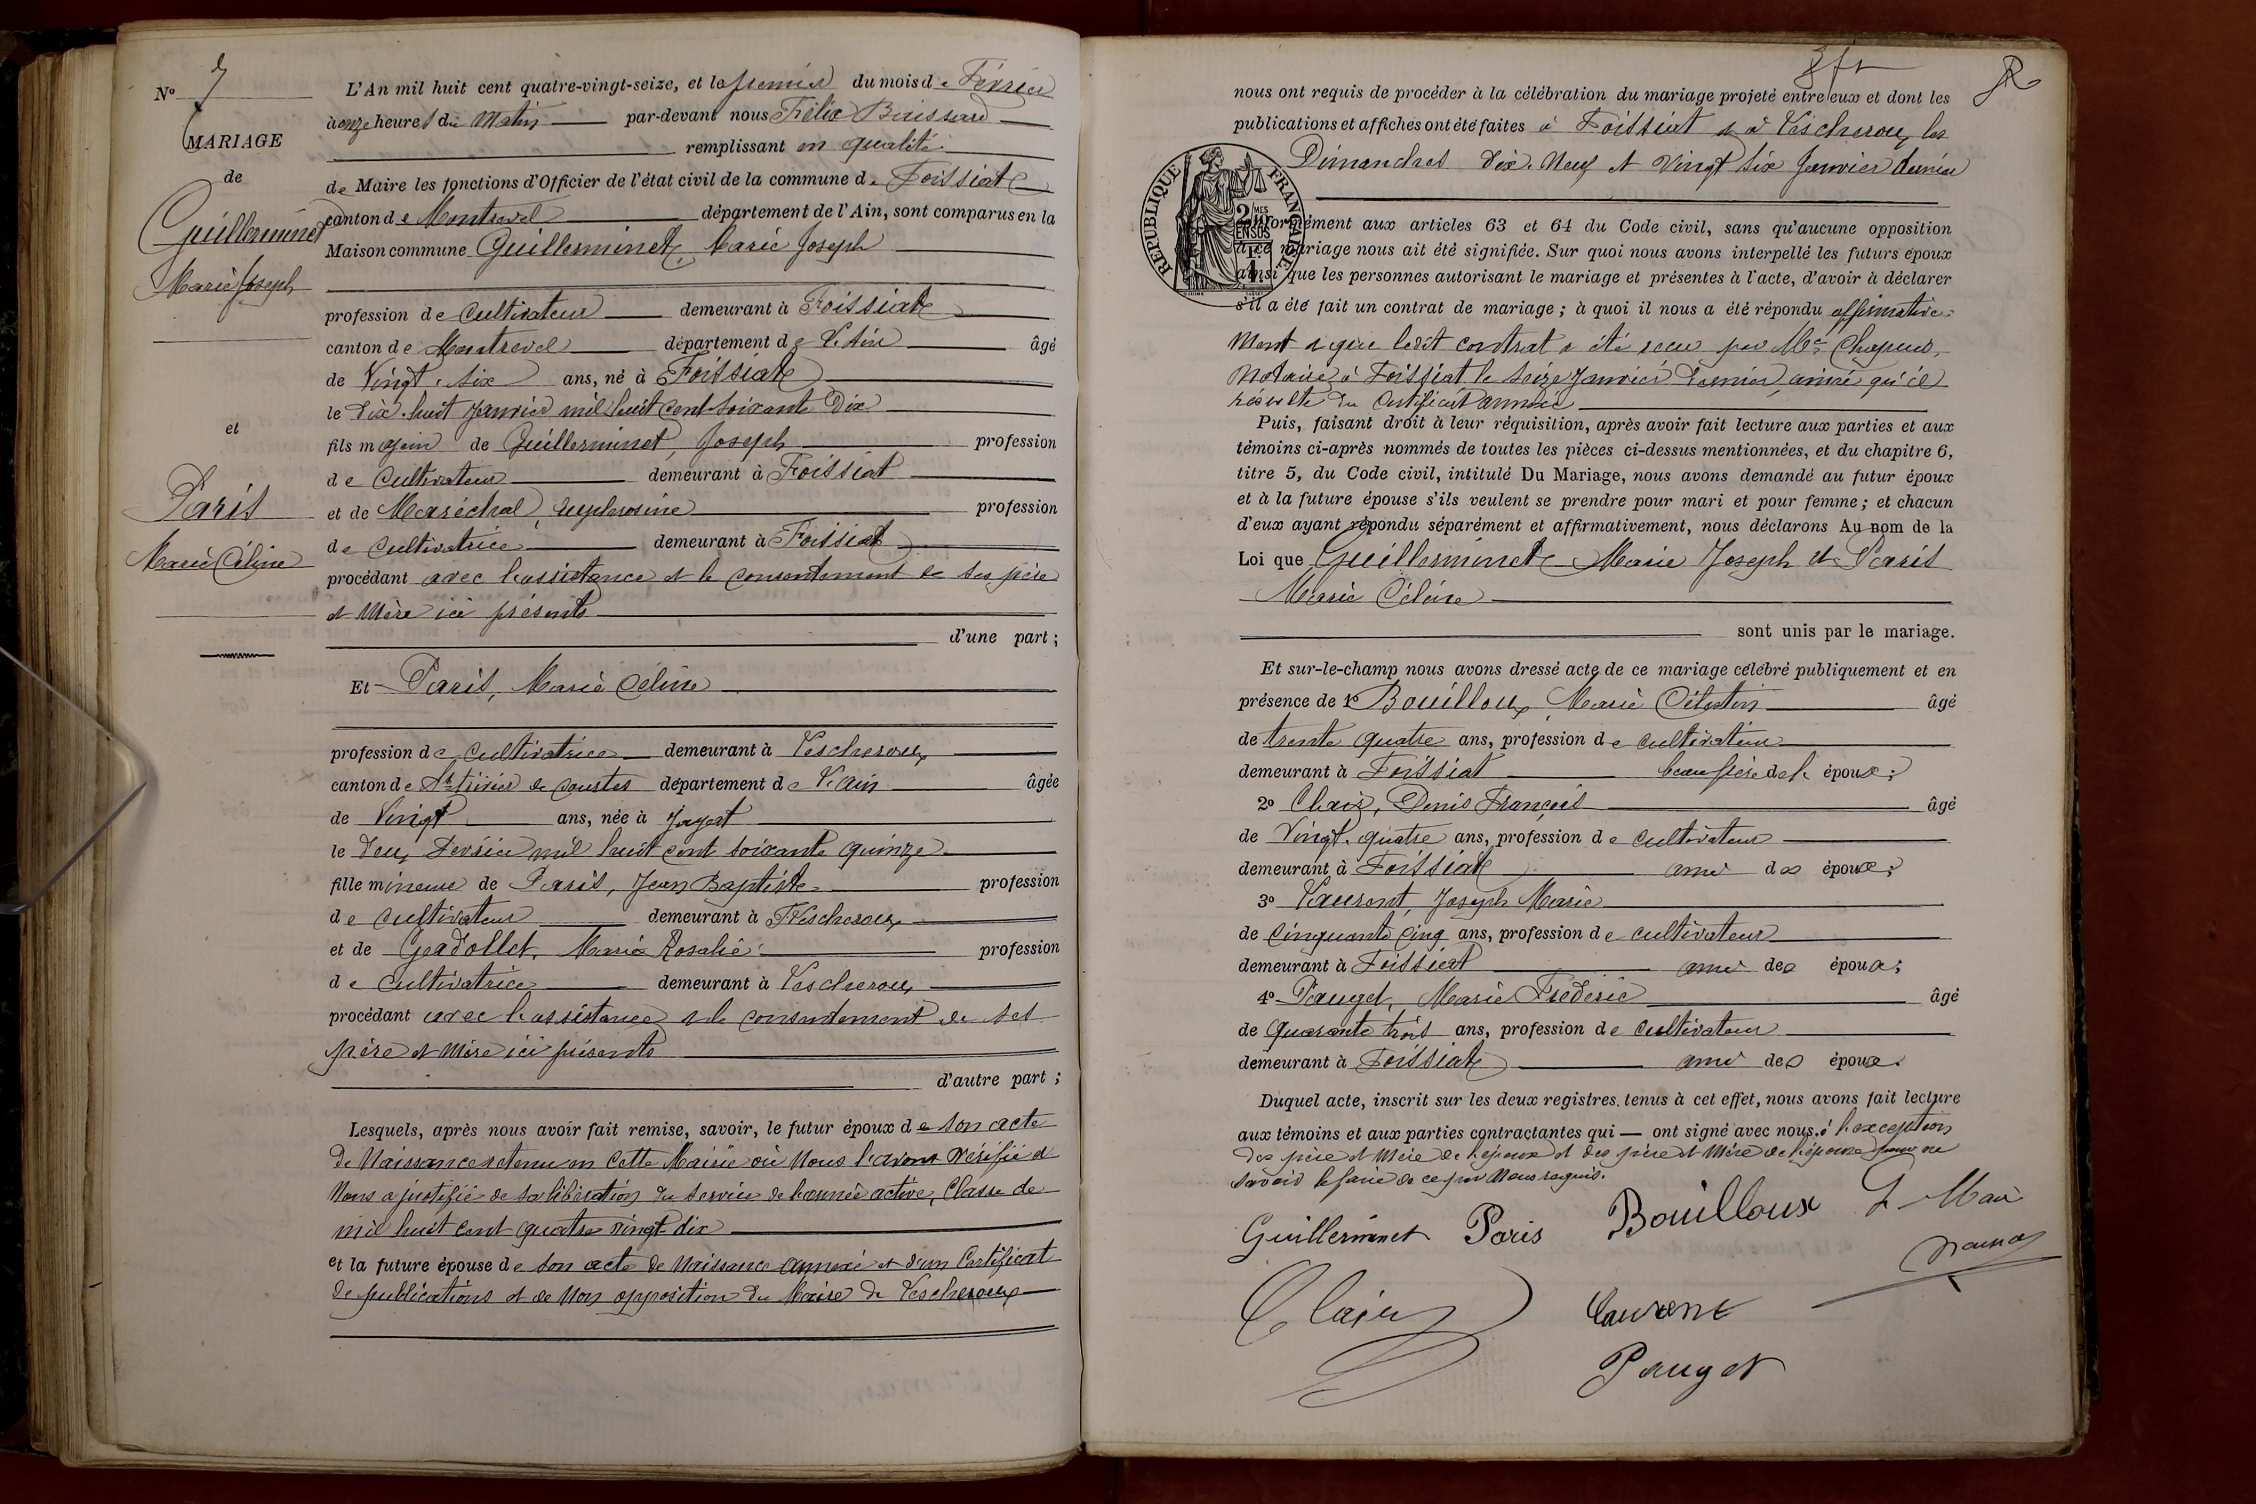 N° 7
MARIAGE
de
Guillerminet
Marie Joseph
et
Paris
Marie Céline
L'An mil huit cent quatre-vingt-seize, et le premier du mois de Février
à onze heures du Matin par-devant nous Félix Buissard
remplissant en qualité
de Maire les fonctions d'Officier de l'état civil de la commune de Foissiat
canton de Montrevel département de l'Ain, sont comparus en la
Maison commune Guillerminet, Marie Joseph
profession de Cultivateur demeurant à Foissiat
canton de Montrevel département de L'Ain âgé
de Vingt-six ans, né à Foissiat
le Dix-huit Janvier mil huit cent soixante Dix
fils majeur de Guillerminet, Joseph profession
de Cultivateur demeurant à Foissiat
et de Maréchal, Euphrosine profession
de Cultivatrice demeurant à Foissiat
procédant avec l'assistance et le consentement de ses père
et Mère ici présents
d'une part ;
Et Paris, Marie Céline
profession de Cultivatrice demeurant à Lescheroux
canton de St trivier de courtes département de L'ain âgée
de Vingt ans, née à Jayat
le Deux Février mil huit cent soixante quinze
fille mineure de Paris, Jean Baptiste profession
de cultivateur demeurant à Lescheroux
et de Gadollet, Marie Rosalie profession
de cultivatrice demeurant à Lescheroux
procédant avec l'assistance et le consentement de ses
père et Mère ici présents
d'autre part ;
Lesquels, après nous avoir fait remise, savoir, le futur époux de son acte
de Naissance retenu en cette Mairie où Nous l'avons vérifié et
Nous a justifié de sa libération du service de l'armée active, Classe de
mil huit cent quatre vingt-dix
et la future épouse de son acte de Naissance annexé et d'un Certificat
de publications et de Non opposition du Maire de Lescheroux
nous ont requis de procéder à la célébration du mariage projeté entre eux et dont les
publications et affiches ont été faites à Foissiat et à Lescheroux, les
Dimanches Dix-Neuf et Vingt six Janvier dernier
RÉPUBLIQUE FRANÇAISE
conformément aux articles 63 et 64 du Code civil, sans qu'aucune opposition
à ce mariage nous ait été signifiée. Sur quoi nous avons interpellé les futurs époux
ainsi que les personnes autorisant le mariage et présentes à l'acte, d'avoir à déclarer
s'il a été fait un contrat de mariage ; à quoi il nous a été répondu affirmative-
ment et que ledit contrat a été reçu par Me Chapuis,
Notaire à Foissiat le seize Janvier dernier, ainsi qu'il
résulte du Certificat annexé
Puis, faisant droit à leur réquisition, après avoir fait lecture aux parties et aux
témoins ci-après nommés de toutes les pièces ci-dessus mentionnées, et du chapitre 6,
titre 5, du Code civil, intitulé Du Mariage, nous avons demandé au futur époux
et à la future épouse s'ils veulent se prendre pour mari et pour femme ; et chacun
d'eux ayant répondu séparément et affirmativement, nous déclarons Au nom de la
Loi que Guillerminet Marie Joseph et Paris
Marie Céline
sont unis par le mariage.
Et sur-le-champ nous avons dressé acte de ce mariage célébré publiquement et en
présence de 1° Bouilloux, Marie Célestin âgé
de trente quatre ans, profession de cultivateur
demeurant à Foissiat beau frère de l'époux ;
2° Clair, Denis François âgé
de Vingt-quatre ans, profession de cultivateur
demeurant à Foissiat ami des époux ;
3° Laurent, Joseph Marie
de Cinquante Cinq ans, profession de cultivateur
demeurant à Foissiat ami des époux ;
4° Pauget, Marie Frédéric âgé
de Quarante trois ans, profession de Cultivateur
demeurant à Foissiat ami des époux.
Duquel acte, inscrit sur les deux registres tenus à cet effet, nous avons fait lecture
aux témoins et aux parties contractantes qui — ont signé avec nous à l'exception
des père et Mère de l'époux et des père et Mère de l'épouse pour ne
savoir le faire de ce par Nous requis.
Guillerminet Paris Bouilloux
Clair Laurent
Pauget